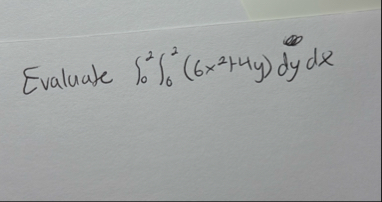 Evaluate ∫₀² ∫₀² (6x²+4y) dy dx